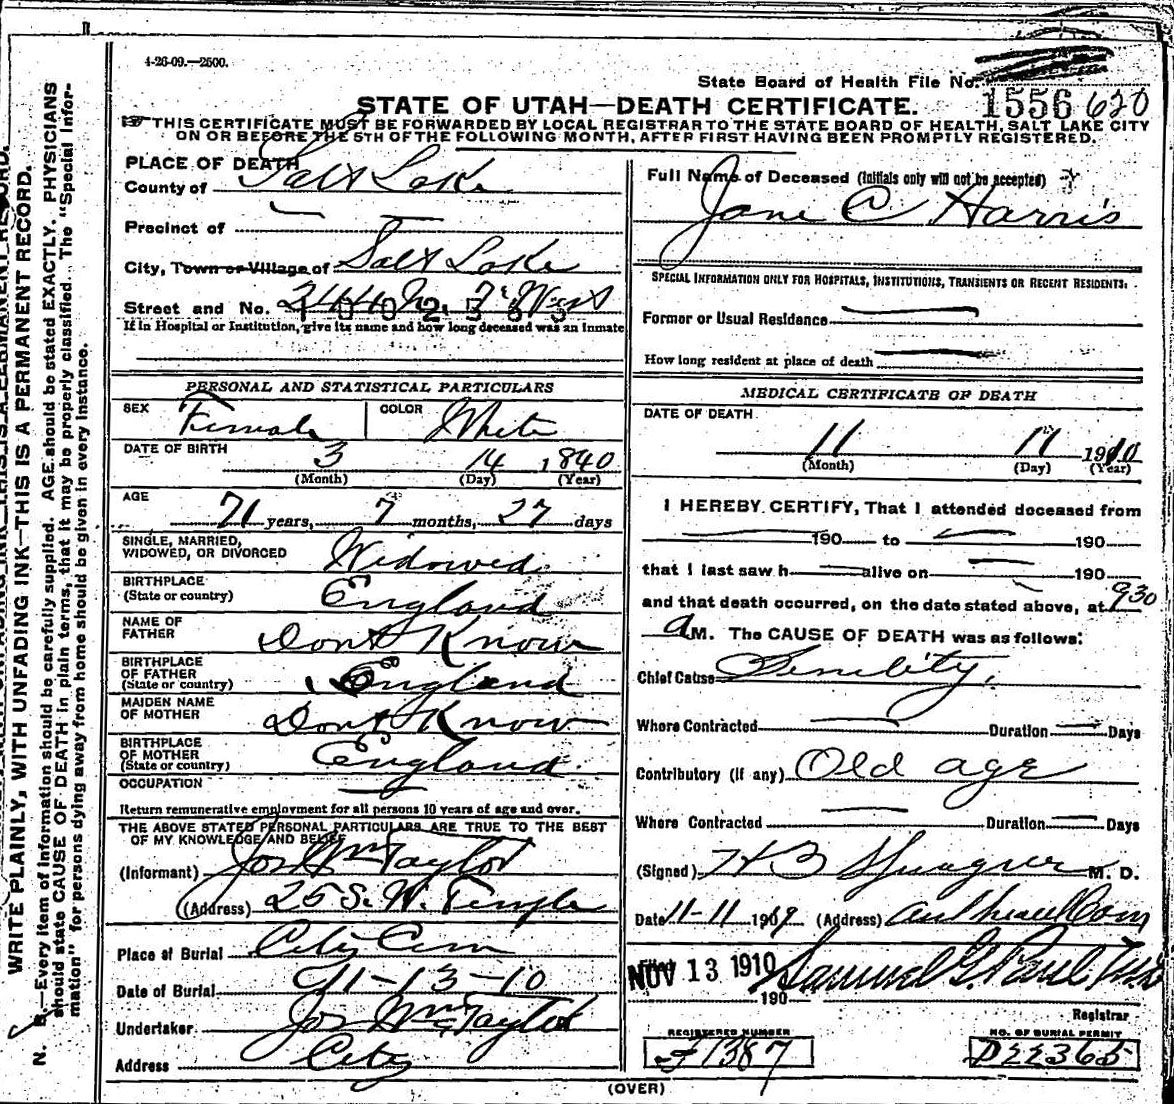 4-26-09.—2500.
State Board of Health File No.
1556 620
STATE OF UTAH—DEATH CERTIFICATE.
THIS CERTIFICATE MUST BE FORWARDED BY LOCAL REGISTRAR TO THE STATE BOARD OF HEALTH, SALT LAKE CITY
ON OR BEFORE THE 5TH OF THE FOLLOWING MONTH, AFTER FIRST HAVING BEEN PROMPTLY REGISTERED.
PLACE OF DEATH
County of Salt Lake
Precinct of
City, Town or Village of Salt Lake
Street and No.
If in Hospital or Institution, give its name and how long deceased was an inmate
PERSONAL AND STATISTICAL PARTICULARS
SEX Female COLOR White
DATE OF BIRTH 3 14 1840
(Month) (Day) (Year)
AGE 71 years, 7 months, 27 days
SINGLE, MARRIED,
WIDOWED, OR DIVORCED Widowed
BIRTHPLACE
(State or country) England
NAME OF
FATHER Dont Know
BIRTHPLACE
OF FATHER
(State or country) England
MAIDEN NAME
OF MOTHER Dont Know
BIRTHPLACE
OF MOTHER
(State or country) England
OCCUPATION
Return remunerative employment for all persons 10 years of age and over.
THE ABOVE STATED PERSONAL PARTICULARS ARE TRUE TO THE BEST
OF MY KNOWLEDGE AND BELIEF
(Informant) Jos Wm Taylor
(Address) 25 S. W. Temple
Place of Burial City Cem
Date of Burial 11-13-10
Undertaker Jos Wm Taylor
Address City
Full Name of Deceased (Initials only will not be accepted)
Jane C Harris
SPECIAL INFORMATION ONLY FOR HOSPITALS, INSTITUTIONS, TRANSIENTS OR RECENT RESIDENTS:
Former or Usual Residence
How long resident at place of death
MEDICAL CERTIFICATE OF DEATH
DATE OF DEATH
11 11 1910
(Month) (Day) (Year)
I HEREBY CERTIFY, That I attended deceased from
190 to 190
that I last saw h alive on 190
and that death occurred, on the date stated above, at 930
a M. The CAUSE OF DEATH was as follows:
Chief Cause Senility,
Where Contracted Duration Days
Contributory (if any) Old age
Where Contracted Duration Days
(Signed) H B M. D.
Date 11-11 (Address)
NOV 13 1910 Samuel G. Paul
190
Registrar
REGISTERED NUMBER
1387
NO. OF BURIAL PERMIT
D22365
(OVER)
WRITE PLAINLY, WITH UNFADING INK—THIS IS A PERMANENT RECORD.
N. B.—Every item of information should be carefully supplied. AGE should be stated EXACTLY. PHYSICIANS
should state CAUSE OF DEATH in plain terms, that it may be properly classified. The "Special Infor-
mation" for persons dying away from home should be given in every instance.